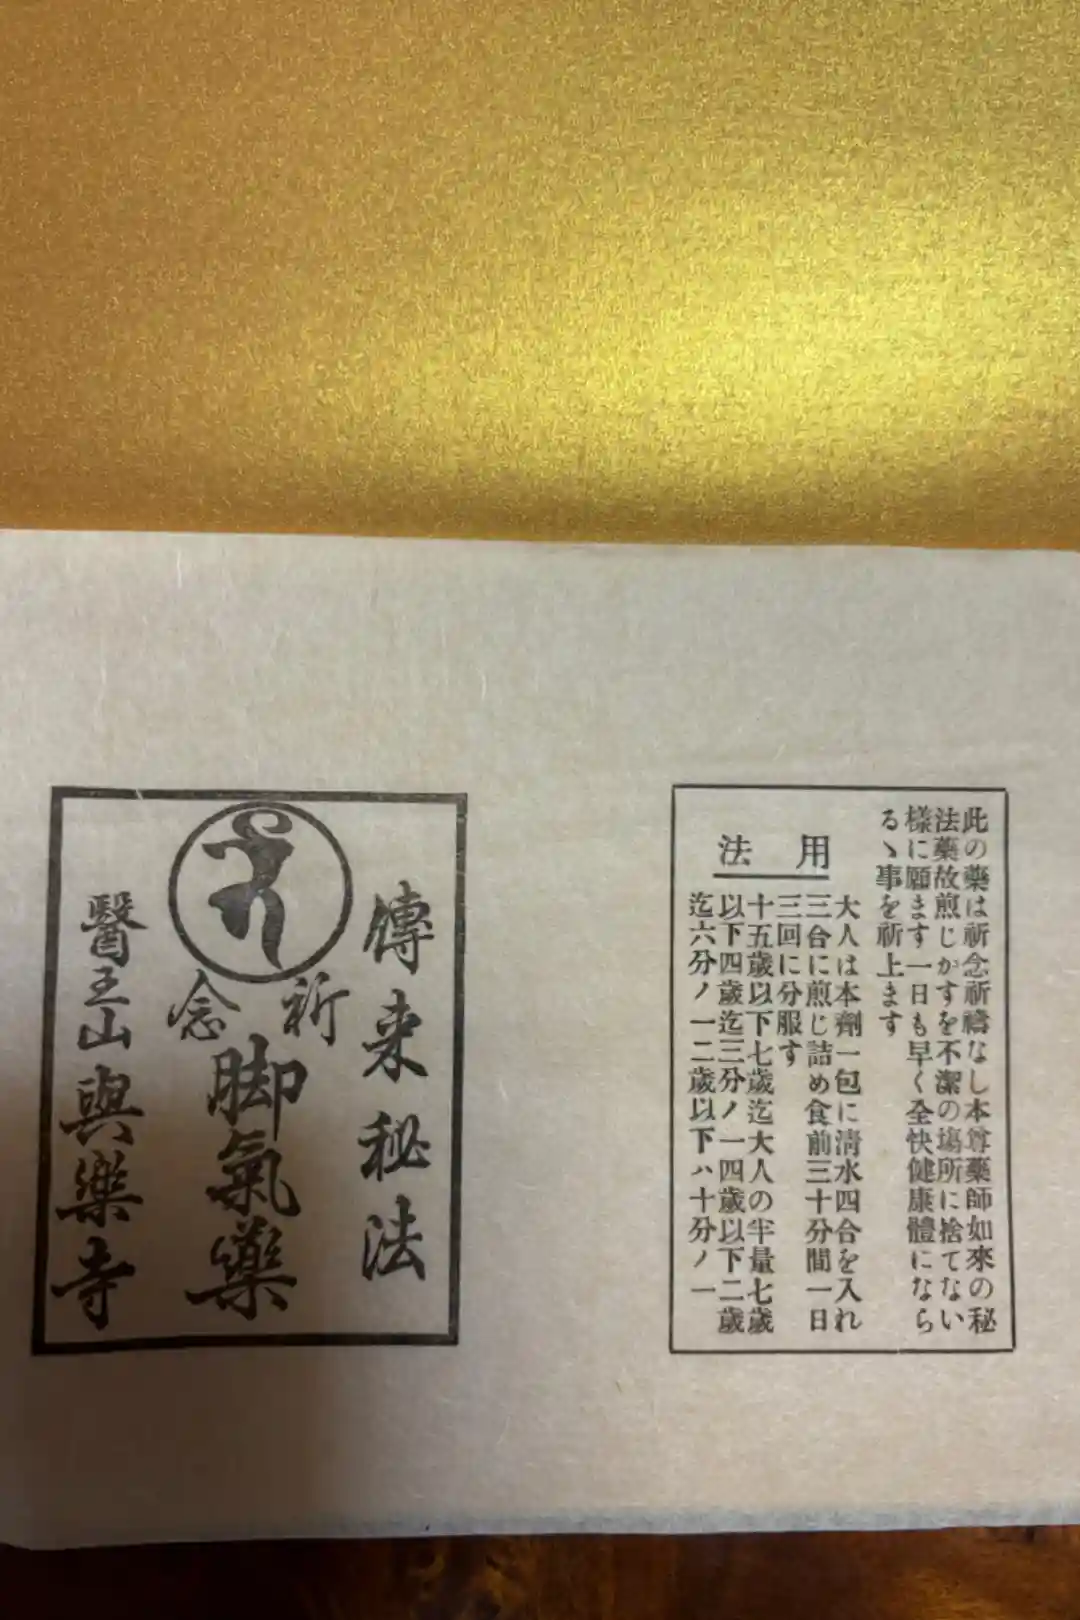 此の藥は祈念祈禱なし本尊藥師如來の秘
法藥故煎じかすを不潔の場所に捨てない
樣に願ます一日も早く全快健康體になら
るゝ事を祈上ます
用法
大人は本劑一包に淸水四合を入れ
三合に煎じ詰め食前三十分間一日
三回に分服す
十五歲以下七歲迄大人の半量七歲
以下四歲迄三分ノ一四歲以下二歲
迄六分ノ一二歲以下ハ十分ノ一
傳来秘法
祈念
脚氣藥
醫王山與樂寺